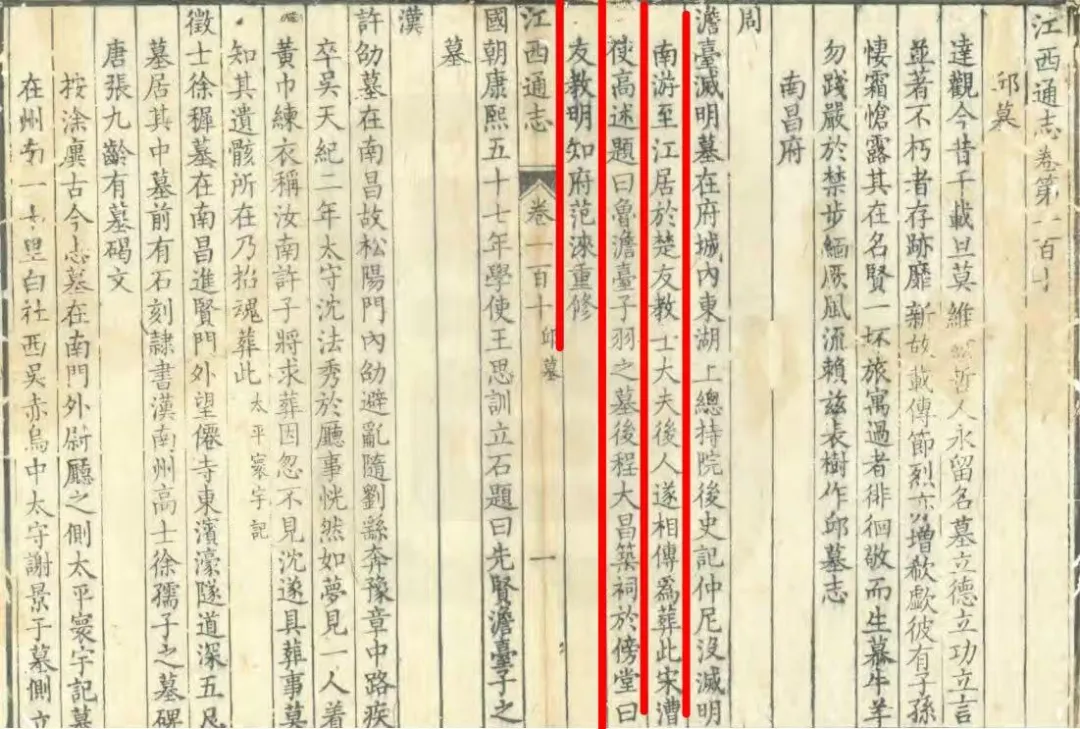 江西通志卷第一百十
邱墓
達觀今昔千載旦莫維哲人永留名墓立德立功立言
並著不朽者存跡靡新故載傳節烈亦增欷歔彼有子孫
悽霜愴露其在名賢一坏旅寓過者徘徊敬而生慕牛羊
勿踐嚴於禁步緬厥風流賴茲表樹作邱墓志
南昌府
周
澹臺滅明墓在府城內東湖上總持院後史記仲尼沒滅明
南游至江居於楚友教士大夫後人遂相傳爲葬此宋漕
使高述題曰魯澹臺子羽之墓後程大昌築祠於傍堂曰
友教明知府范淶重修
江西通志 卷一百十 邱墓 一
國朝康熙五十七年學使王思訓立石題曰先賢澹臺子之
墓
漢
許劭墓在南昌故松陽門內劭避亂隨劉繇奔豫章中路疾
卒吳天紀二年太守沈法秀於廳事恍然如夢見一人着
黃巾練衣稱汝南許子將求葬因忽不見沈遂具葬事莫
知其遺骸所在乃招魂葬此太平寰宇記
徵士徐穉墓在南昌進賢門外望僊寺東濱濠隧道深五尺
墓居其中墓前有石刻隸書漢南州高士徐孺子之墓碑
唐張九齡有墓碣文
按涂廙古今志墓在南門外尉廳之側太平寰宇記墓
在州南一十里白社西吳赤烏中太守謝景于墓側立